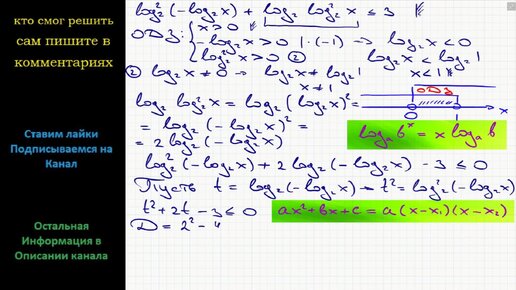 кто смог решить
сам пишите в
комментариях
Ставим лайки
Подписываемся на
Канал
Остальная
Информация в
Описании канала
log₂²(-log₂x) + log₂ log₂²x ≤ 3
ОДЗ: { x > 0
-log₂x > 0 | · (-1) → log₂x < 0
log₂²x > 0 ② log₂x < log₂1
② log₂x ≠ 0 → log₂x ≠ log₂1 x < 1
x ≠ 1
ОДЗ
log₂ log₂²x = log₂(log₂x)² =
0 1 x
= log₂(-log₂x)² =
= 2 log₂(-log₂x)
logₐ bˣ = x logₐ b
log₂²(-log₂x) + 2 log₂(-log₂x) - 3 ≤ 0
Пусть t = log₂(-log₂x) → t² = log₂²(-log₂x)
t² + 2t - 3 ≤ 0
ax² + bx + c = a(x - x₁)(x - x₂)
D = 2² - 4